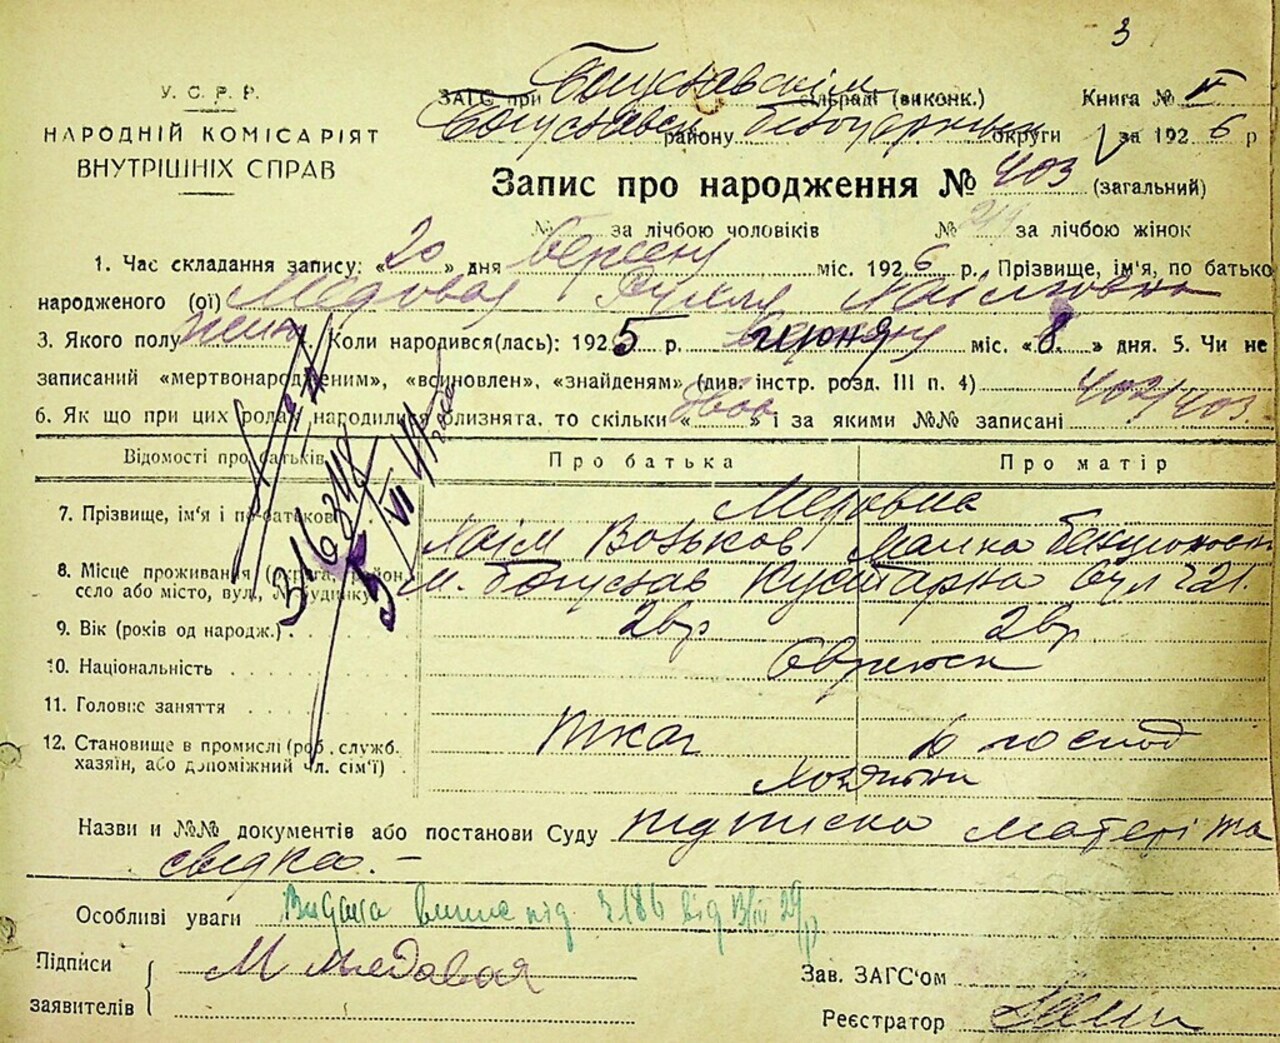 3
У. С. Р. Р.
НАРОДНІЙ КОМІСАРІЯТ
ВНУТРІШНІХ СПРАВ
ЗАГС при Богуславскім сільраді (виконк.) Книга № II
Богуславськ району Білоцерківськ округи за 1926 р
Запис про народження № 403 (загальний)
№ за лічбою чоловіків № за лічбою жінок
1. Час складання запису: «20» дня вересня міс. 1926 р. Прізвище, ім'я, по батько
народженого (ої) Медовая Хаімовна
3. Якого полу жин 4. Коли народився(лась): 1925 р. июня міс. «8» дня. 5. Чи не
записаний «мертвонародженим», «всиновлен», «знайденям» (див. інстр. розд. III п. 4) 402/403
6. Як що при цих родах народилися близнята, то скільки «двоє» і за якими №№ записані
Відомості про батьків Про батька Про матір
7. Прізвище, ім'я і по-батькові Медовая
Хаім Волькові Малка
8. Місце проживання (округа, район, м. Богуслав Кустарна вул ч 21.
село або місто, вул., № будинку)
9. Вік (років од народж.) 26р 26р
10. Національність Єврейск
11. Головне заняття Ткач
12. Становище в промислі (роб., служб. господ
хазяїн, або допоміжний чл. сім'ї) Хозяйки
Назви и №№ документів або постанови Суду підписка матері та
свідка. —
Особливі уваги Видана випис під ч 186 від 13/III 29 р
Підписи М Медовая Зав. ЗАГС'ом
заявителів Реєстратор